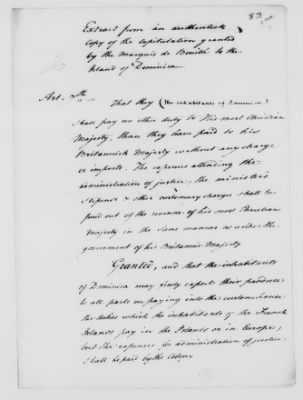 82
Extract from an authentick
Copy of the Capitulation granted
by the Marquis de Bouillé to the
Island of Dominica
Art. 7th
That they (the inhabitants of Dominica)
shall pay no other duty to His most Christian
Majesty, than they have paid to his
Britannick Majesty without any charge
or imposts. The expences attending the
administration of justice, the minister's
stipends & other customary charges shall be
paid out of the revenue of his most Christian
Majesty in the same manner as under the
government of his Britannic Majesty
Granted, and that the inhabitants
of Dominica may freely export their produce
to all parts on paying into the customhouse
the duties which the inhabitants of the French
Islands pay in the Islands or in Europe;
but the expences for administration of justice
shall be paid by the Colony